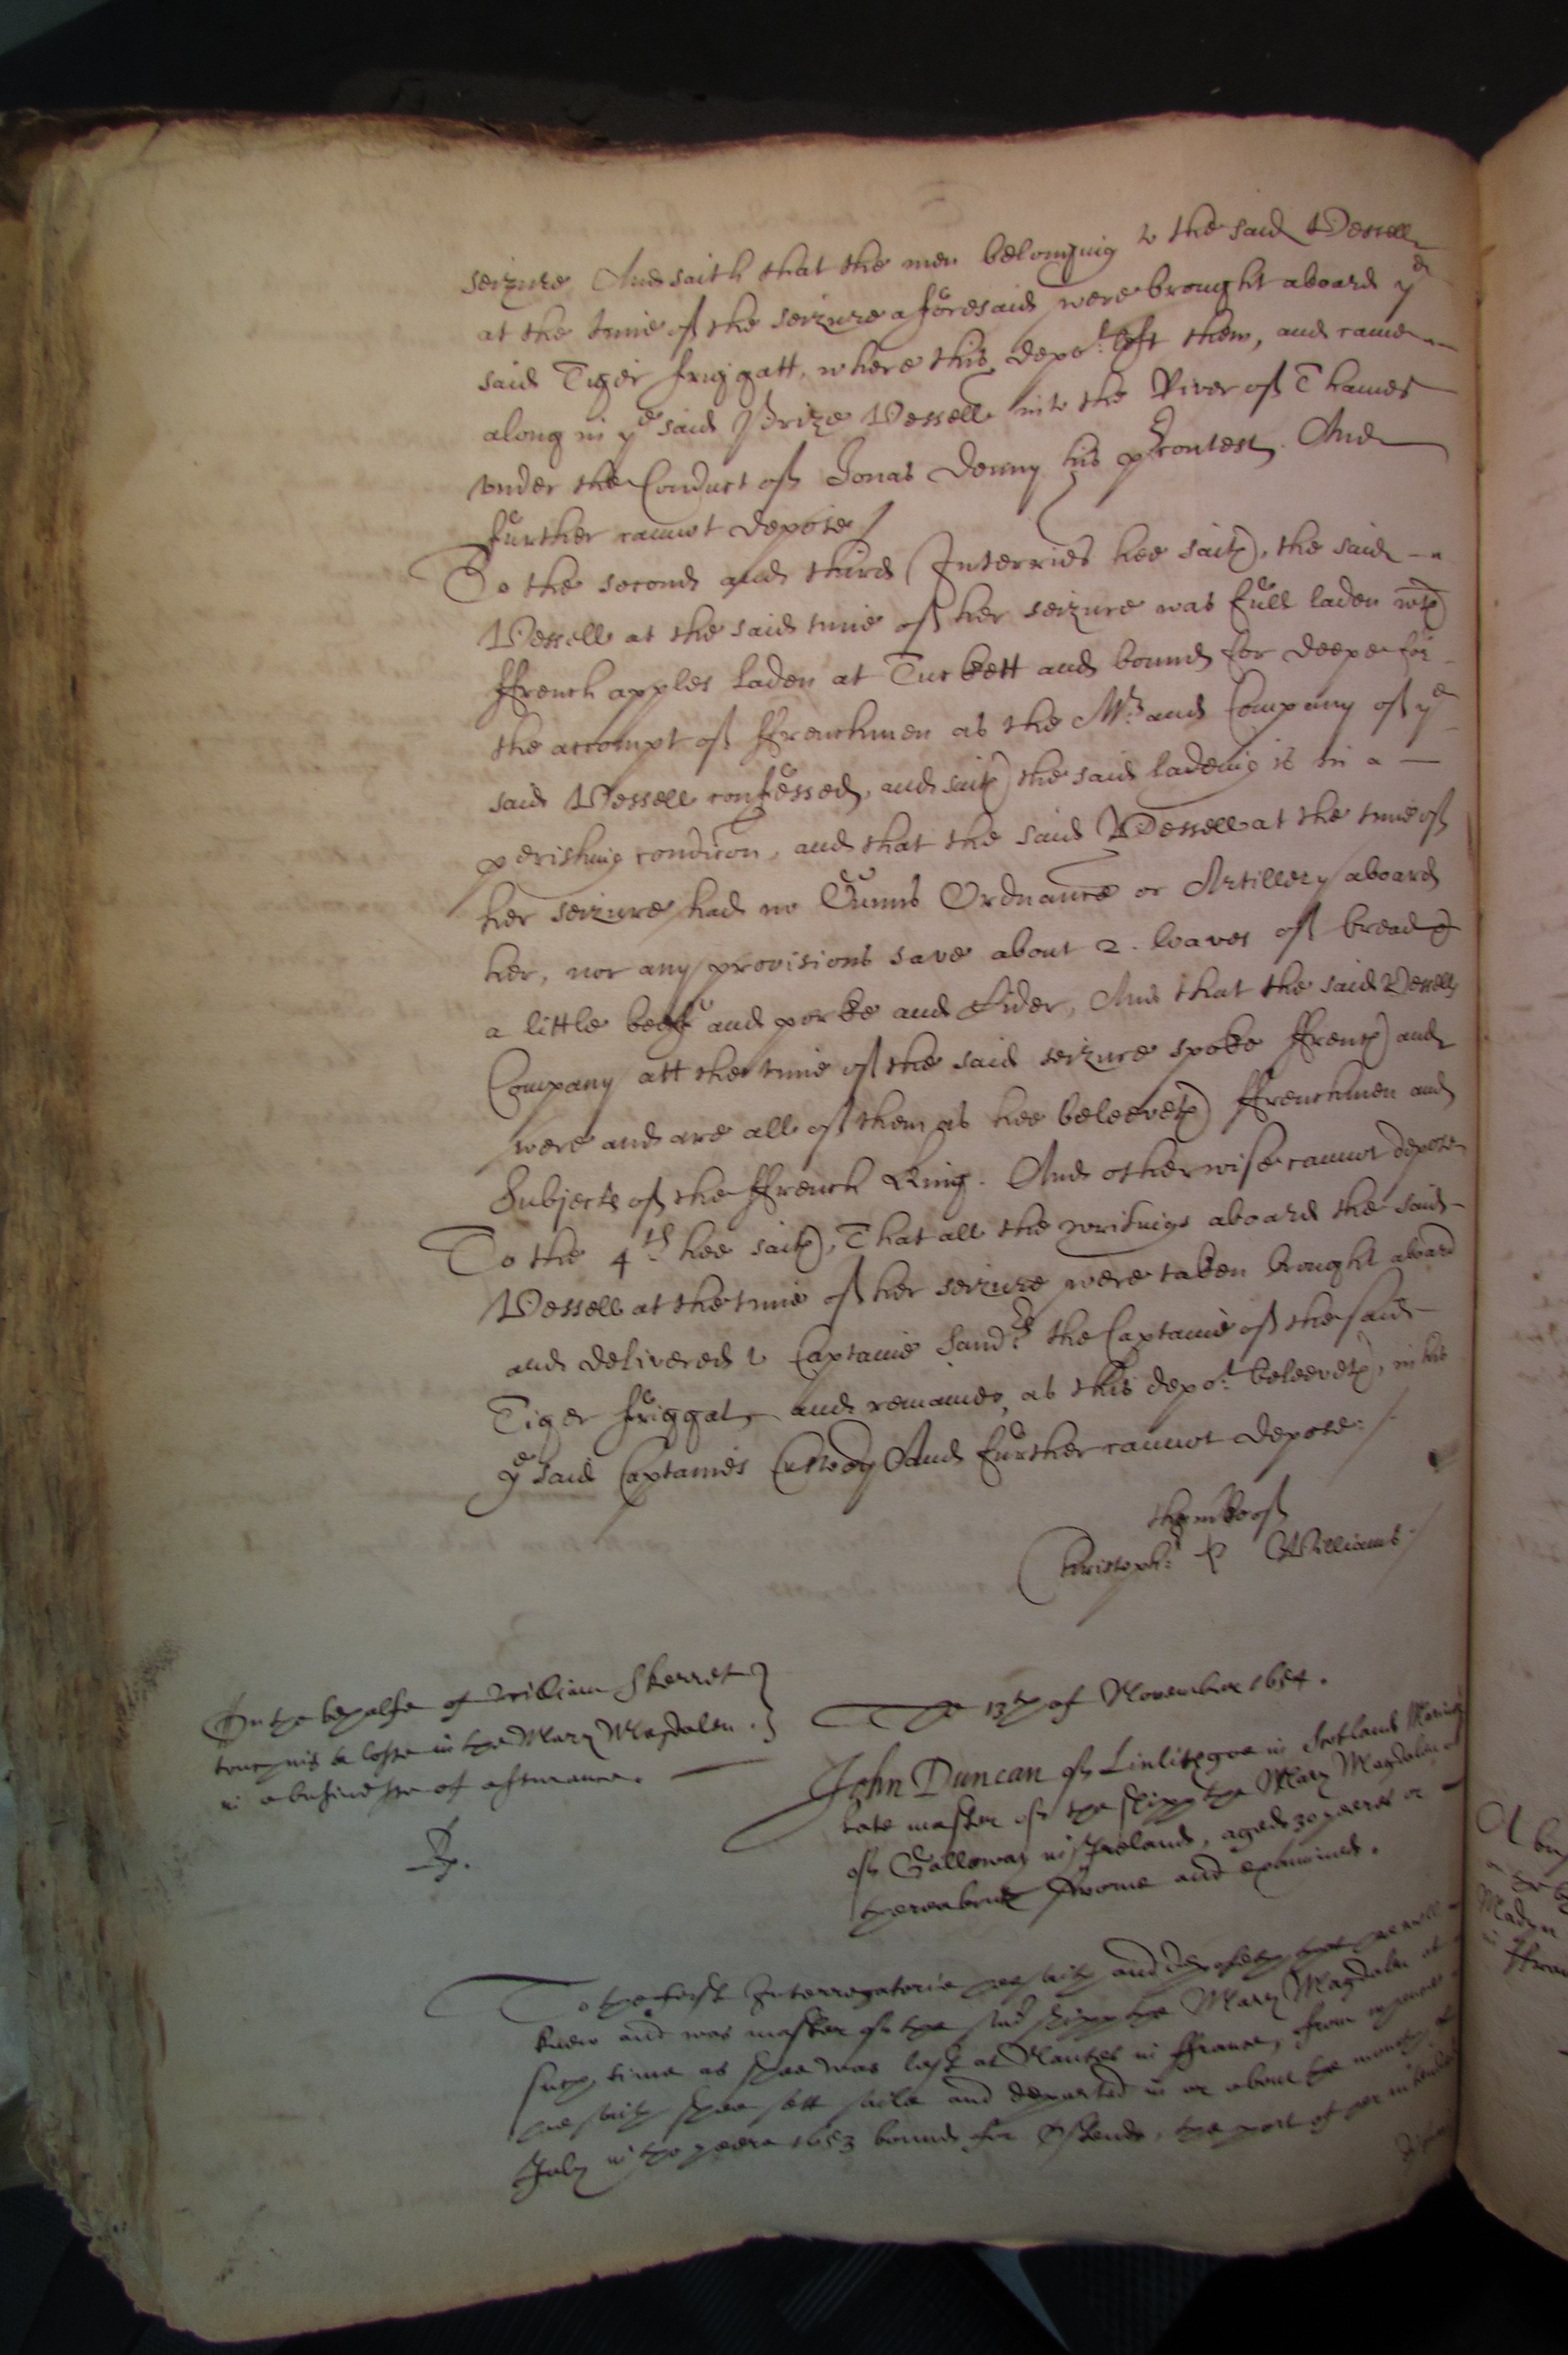 seizure And saith that the men belonging to the said Vessell
at the time of the seizure aforesaid were brought aboard ye
said Tiger friggatt, where this depot left them, and came
along in ye said Prize Vessell into the River of Thames
under the Conduct of Jonas Denny his precontest. And
further cannot depose /
To the second and third Interries hee saith, the said
Vessell at the said time of her seizure was full laden wth
ffrench apples laden at Tuckett and bound for deepe for
the accompt of ffrenchmen as the Mr and Company of ye
said Vessell confessed, and saith the said ladeing is in a
perishing condicon, and that the said Vessell at the time of
her seizure had no Gunns Ordnance or Artillery aboard
her, nor any provisions save about 2. loaves of bread &
a little beefe and porke and Sider, And that the said Vessells
Company att the time of the said seizure spoke ffrench and
were and are all of them as hee beleeveth ffrenchmen and
Subjects of the ffrench King. And otherwise cannot depose
To the 4th hee saith, That all the writings aboard the said
Vessell at the time of her seizure were taken brought aboard
and delivered to Captaine Sands the Captaine of the said
Tiger friggat, and remaines, as this depot beleeveth, in his
ye said Captaines Custody And further cannot depose: /
the mke of
Christoph: Williams /
In the behalfe of William Skerret
touching a losse in the Mary Magdalen
in a businesse of assurance.
The 13th of November 1654.
John Duncan of Linlithgoe in Scotland Marin
late master of the shipp the Mary Magdalen
of Galloway in Ireland, aged 30 yeeres or
thereabouts sworne and examined.
To the first Interrogatorie hee saith and deposeth that he well
knew and was master of the said shipp the Mary Magdalen at
such time as shee was last at Nantes in ffrance, from whence
hee saith shee sett saile and departed in or about the moneth of
July in the yeere 1653 bound for Ostende, the port of her intended